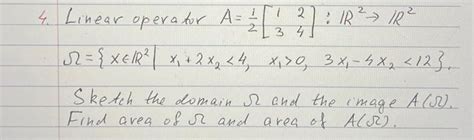 4. Linear operator A = 1/2 [1 2; 3 4] : ℝ² → ℝ²
Ω = { x ∈ ℝ² | x₁ + 2x₂ < 4, x₁ > 0, 3x₁ - 4x₂ < 12 }.
Sketch the domain Ω and the image A(Ω).
Find area of Ω and area of A(Ω).